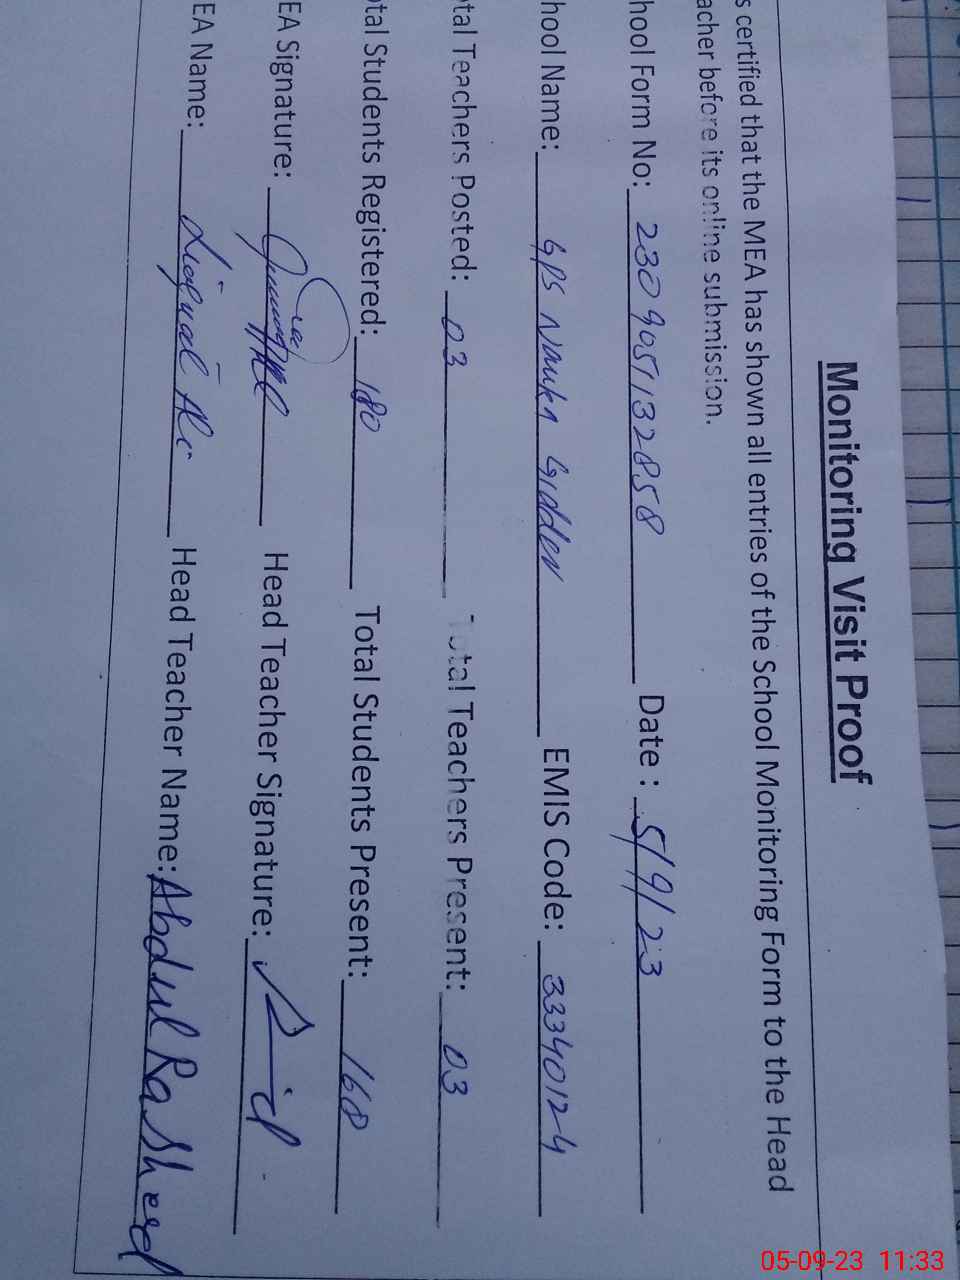 Monitoring Visit Proof
s certified that the MEA has shown all entries of the School Monitoring Form to the Head
acher before its online submission.
hool Form No: 2309051132858 Date : 5/9/23
hool Name: GPS Nauka Gidden EMIS Code: 33340124
tal Teachers Posted: 03 Total Teachers Present: 03
otal Students Registered: 180 Total Students Present: 168
EA Signature: Head Teacher Signature:
EA Name: Liaquat Ali Head Teacher Name: Abdul Rasheed
05-09-23 11:33